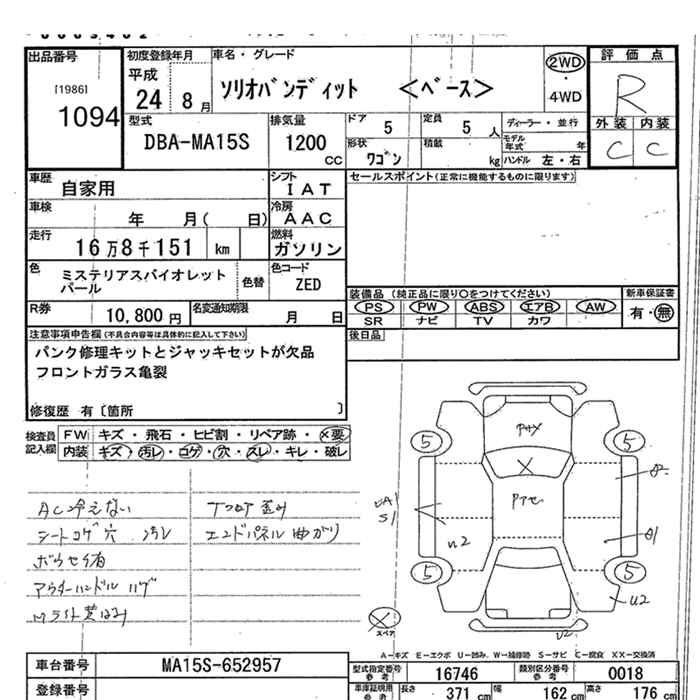 出品番号
[1986]
1094
初度登録年月
平成
24 8月
車名・グレード
ソリオバンディット <ベース>
2WD
・
4WD
評価点
R
外装 内装
C C
型式
DBA-MA15S
排気量
1200
cc
ドア 5
定員 5 人
ディーラー・並行
形状 ワゴン
積載 kg
モデル年式 年
ハンドル 左・右
車歴 自家用
シフト IAT
車検 年 月( 日)
冷房 AAC
走行 16万8千151 km
燃料 ガソリン
色 ミステリアスバイオレットパール
色替
色コード ZED
R券 10,800 円
名変通知期限 月 日
セールスポイント(正常に機能するものに限ります)
装備品 (純正品に限り○をつけてください)
新車保証書
PS PW ABS エアB AW
有・無
SR ナビ TV カワ
後日品
注意事項申告欄(不具合内容等は具体的に記入して下さい)
パンク修理キットとジャッキセットが欠品
フロントガラス亀裂
修復歴 有〔箇所 〕
検査員記入欄
FW キズ・飛石・ヒビ割・リペア跡・×要
内装 キズ・汚レ・コゲ・穴・スレ・キレ・破レ
AC冷えない
シートコゲ穴 汚レ
アウターハンドル ハゲ
Tフロア歪み
エンドパネル曲がり
5 5
5 5
S1
U2
U2
U2
スペア
A-キズ E-エクボ U-凹み W-補修跡 S-サビ C-腐食 XX-交換済
車台番号 MA15S-652957
登録番号
型式指定番号 参考 16746
類別区分番号 参考 0018
車庫証明用 参考
長さ 371 cm
幅 162 cm
高さ 176 cm